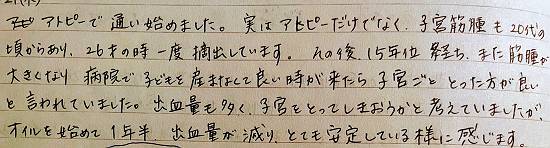 アトピーで通い始めました。実はアトピーだけでなく、子宮筋腫も20代の
頃からあり、26才の時一度摘出しています。その後、15年位経ち、また筋腫が
大きくなり病院で子どもを産まなくて良い時が来たら子宮ごととった方が良い
と言われていました。出血量も多く、子宮をとってしまおうかと考えていましたが、
オイルを始めて1年半、出血量が減り、とても安定している様に感じます。